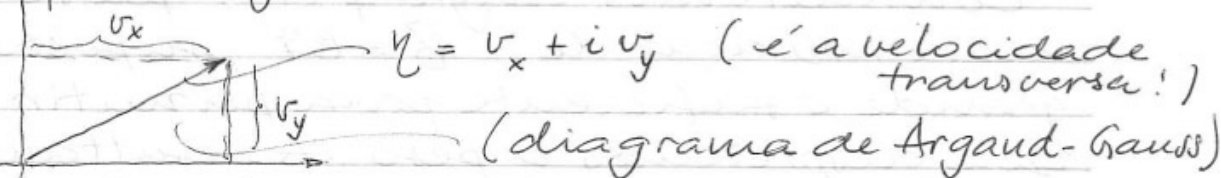 v_x
η = v_x + i v_y (é a velocidade
transversa!)
v_y
(diagrama de Argand-Gauss)